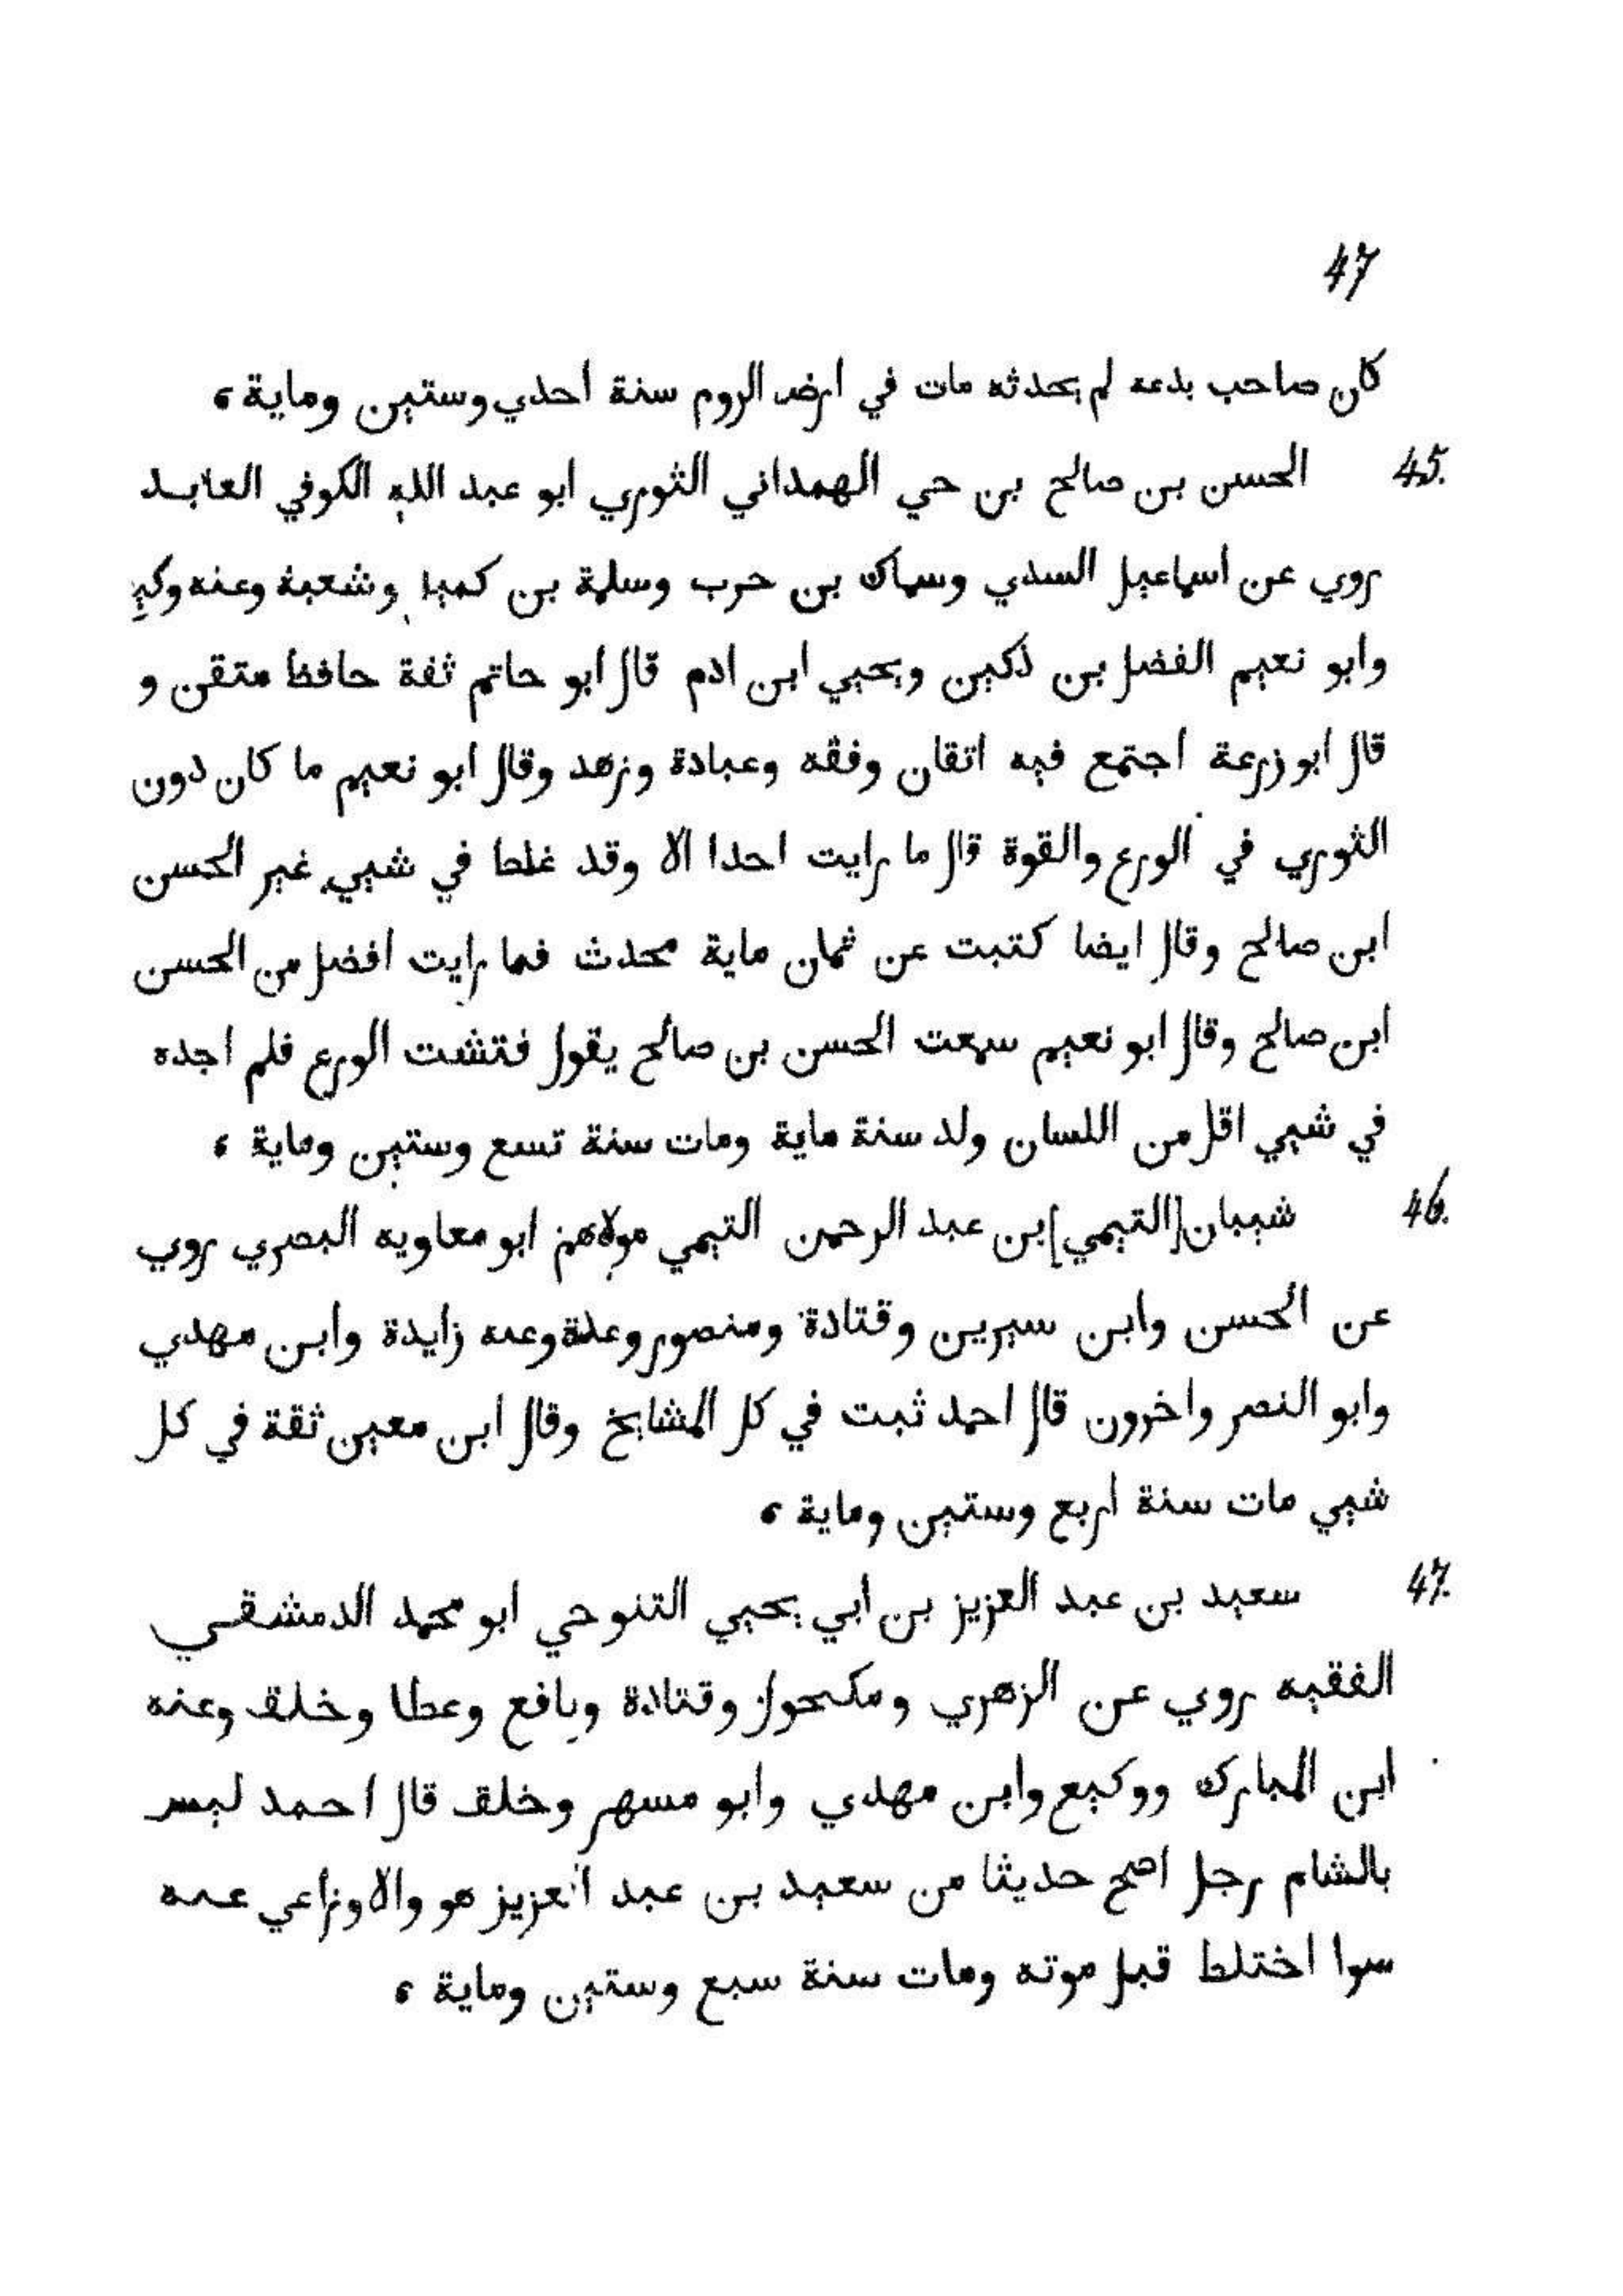 47
كان صاحب بدعه لم يحدثه مات في ارض الروم سنة احدي وستين وماية ،
45. الحسن بن صالح بن حي الهمداني الثوري ابو عبد الله الكوفي العابد
روي عن اسماعيل السدي وسماك بن حرب وسلمة بن وشعبة وعنه
وابو نعيم الفضل بن ذكين ويحيي ابن ادم قال ابو حاتم ثقة حافظ متقن و
قال ابو زرعة اجتمع فيه اتقان وفقه وعبادة وزهد وقال ابو نعيم ما كان دون
الثوري في الورع والقوة قال ما رايت احدا الا وقد غلط في شيي غير الحسن
ابن صالح وقال ايضا كتبت عن ثمان ماية محدث فما رايت افضل من الحسن
ابن صالح وقال ابو نعيم سمعت الحسن بن صالح يقول فتشت الورع فلم اجده
في شيي اقل من اللسان ولد سنة ماية ومات سنة تسع وستين وماية ،
46. شيبان [التيمي] بن عبد الرحمن التيمي مولاهم ابو معاويه البصري روي
عن الحسن وابن سيرين وقتادة ومنصور وعدة وعنه زايدة وابن مهدي
وابو النصر واخرون قال احمد ثبت في كل المشايخ وقال ابن معين ثقة في كل
شيي مات سنة اربع وستين وماية ،
47. سعيد بن عبد العزيز بن أبي يحيي التنوحي ابو محمد الدمشقي
الفقيه روي عن الزهري ومكحول وقتادة ونافع وعطا وخلق وعنه
ابن المبارك ووكيع وابن مهدي وابو مسهر وخلق قال احمد ليس
بالشام رجل اصح حديثا من سعيد بن عبد العزيز هو والاوزاعي عنده
سوا اختلط قبل موته ومات سنة سبع وستين وماية ،